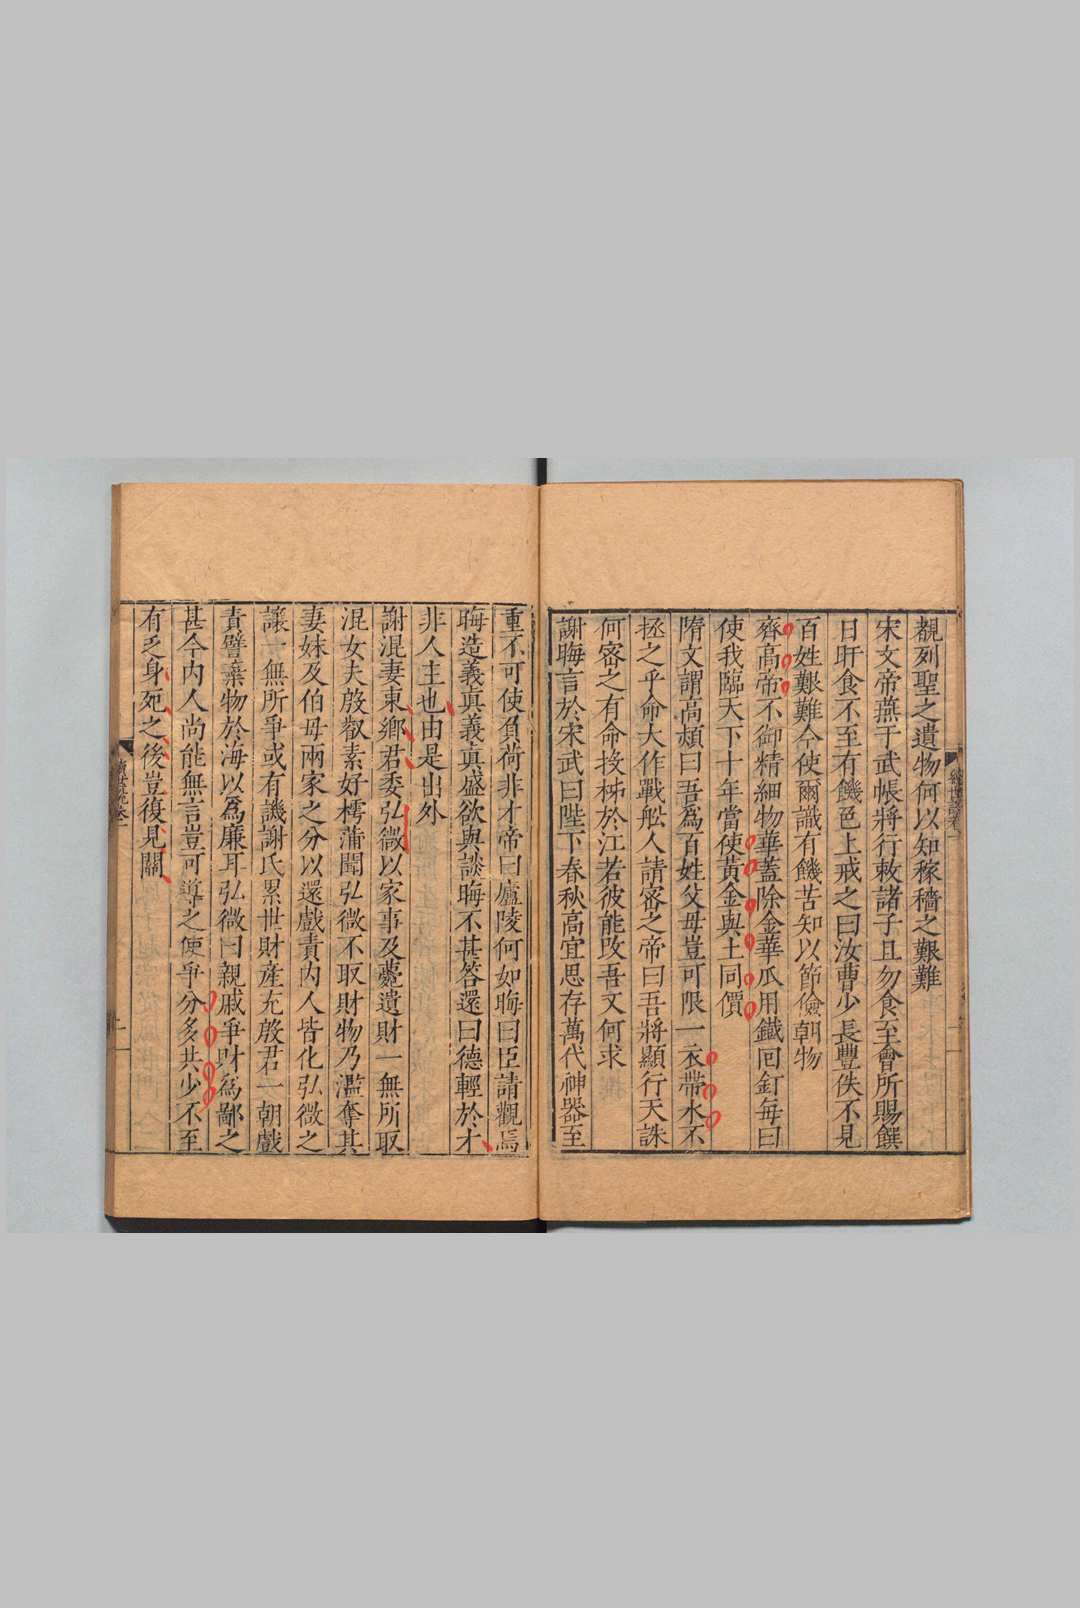 覩列聖之遺物何以知稼穡之艱難
宋文帝燕于武帳將行敕諸子且勿食至會所賜饌
日旰食不至有饑色上戒之曰汝曹少長豐佚不見
百姓艱難今使爾識有饑苦知以節儉朝物
齊高帝不御精細物華蓋除金華瓜用鐵回釘每曰
使我臨天下十年當使黃金與土同價
隋文謂高熲曰吾爲百姓父母豈可限一衣帶水不
拯之乎命大作戰舩人請密之帝曰吾將顯行天誅
何密之有命投柹於江若彼能改吾又何求
謝晦言於宋武曰陛下春秋高宜思存萬代神器至
重不可使負荷非才帝曰廬陵何如晦曰臣請觀焉
晦造義真義真盛欲與談晦不甚答還曰德輕於才
非人主也由是出外
謝混妻東鄉君委弘微以家事及薨遺財一無所取
混女夫殷叡素好樗蒲聞弘微不取財物乃濫奪其
妻妹及伯母兩家之分以還戲責內人皆化弘微之
讓一無所爭或有譏謝氏累世財產充殷君一朝戲
責譬棄物於海以爲廉耳弘微曰親戚爭財爲鄙之
甚今內人尚能無言豈可導之使爭分多共少不至
有乏身死之後豈復見關